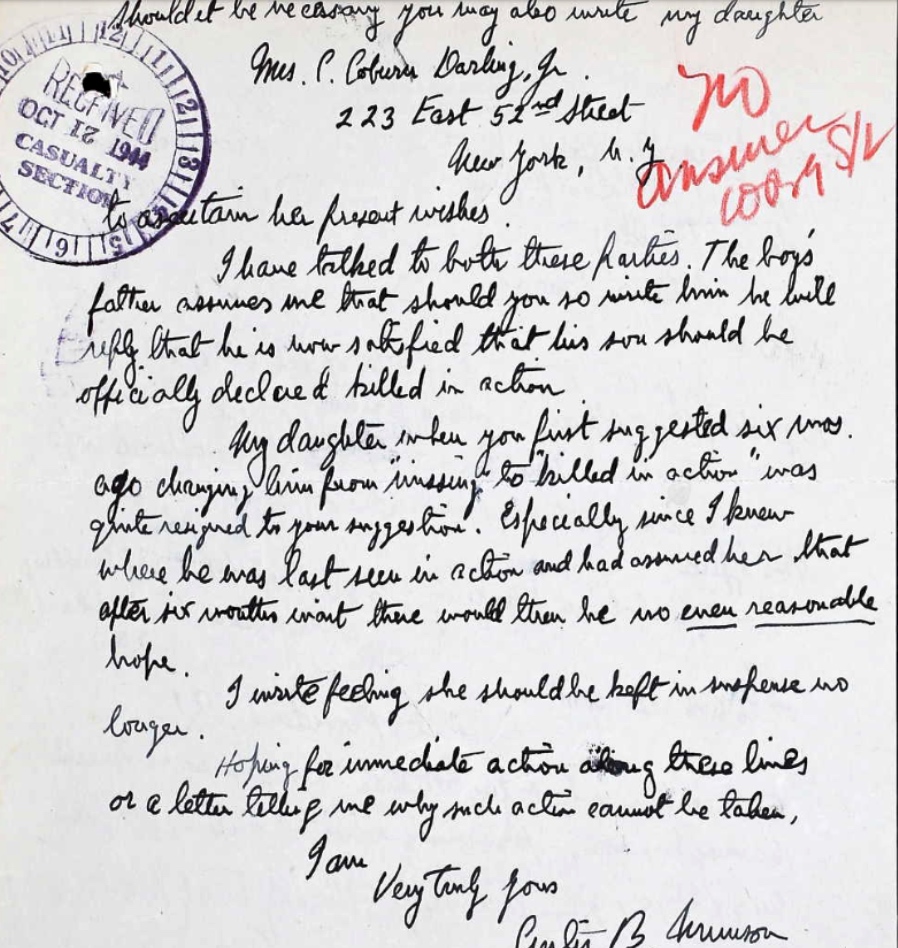 Should it be necessary you may also write my daughter
Mrs. C. Coburn Darling, Jr.
223 East 52nd Street
New York, N.Y
RECEIVED
OCT 12 1944
CASUALTY
SECTION
No
answer
to ascertain her present wishes.
I have talked to both these parties. The boy's
father assures me that should you so write him he will
reply that he is now satisfied that his son should be
officially declared killed in action
My daughter when you first suggested six mos.
ago changing him from "missing" to "killed in action" was
quite resigned to your suggestion. Especially since I knew
where he was last seen in action and had assured her that
after six months wait there would then be no even reasonable
hope.
I write feeling she should be kept in suspense no
longer.
Hoping for immediate action along these lines
or a letter telling me why such action cannot be taken,
I am
Very truly yours
B